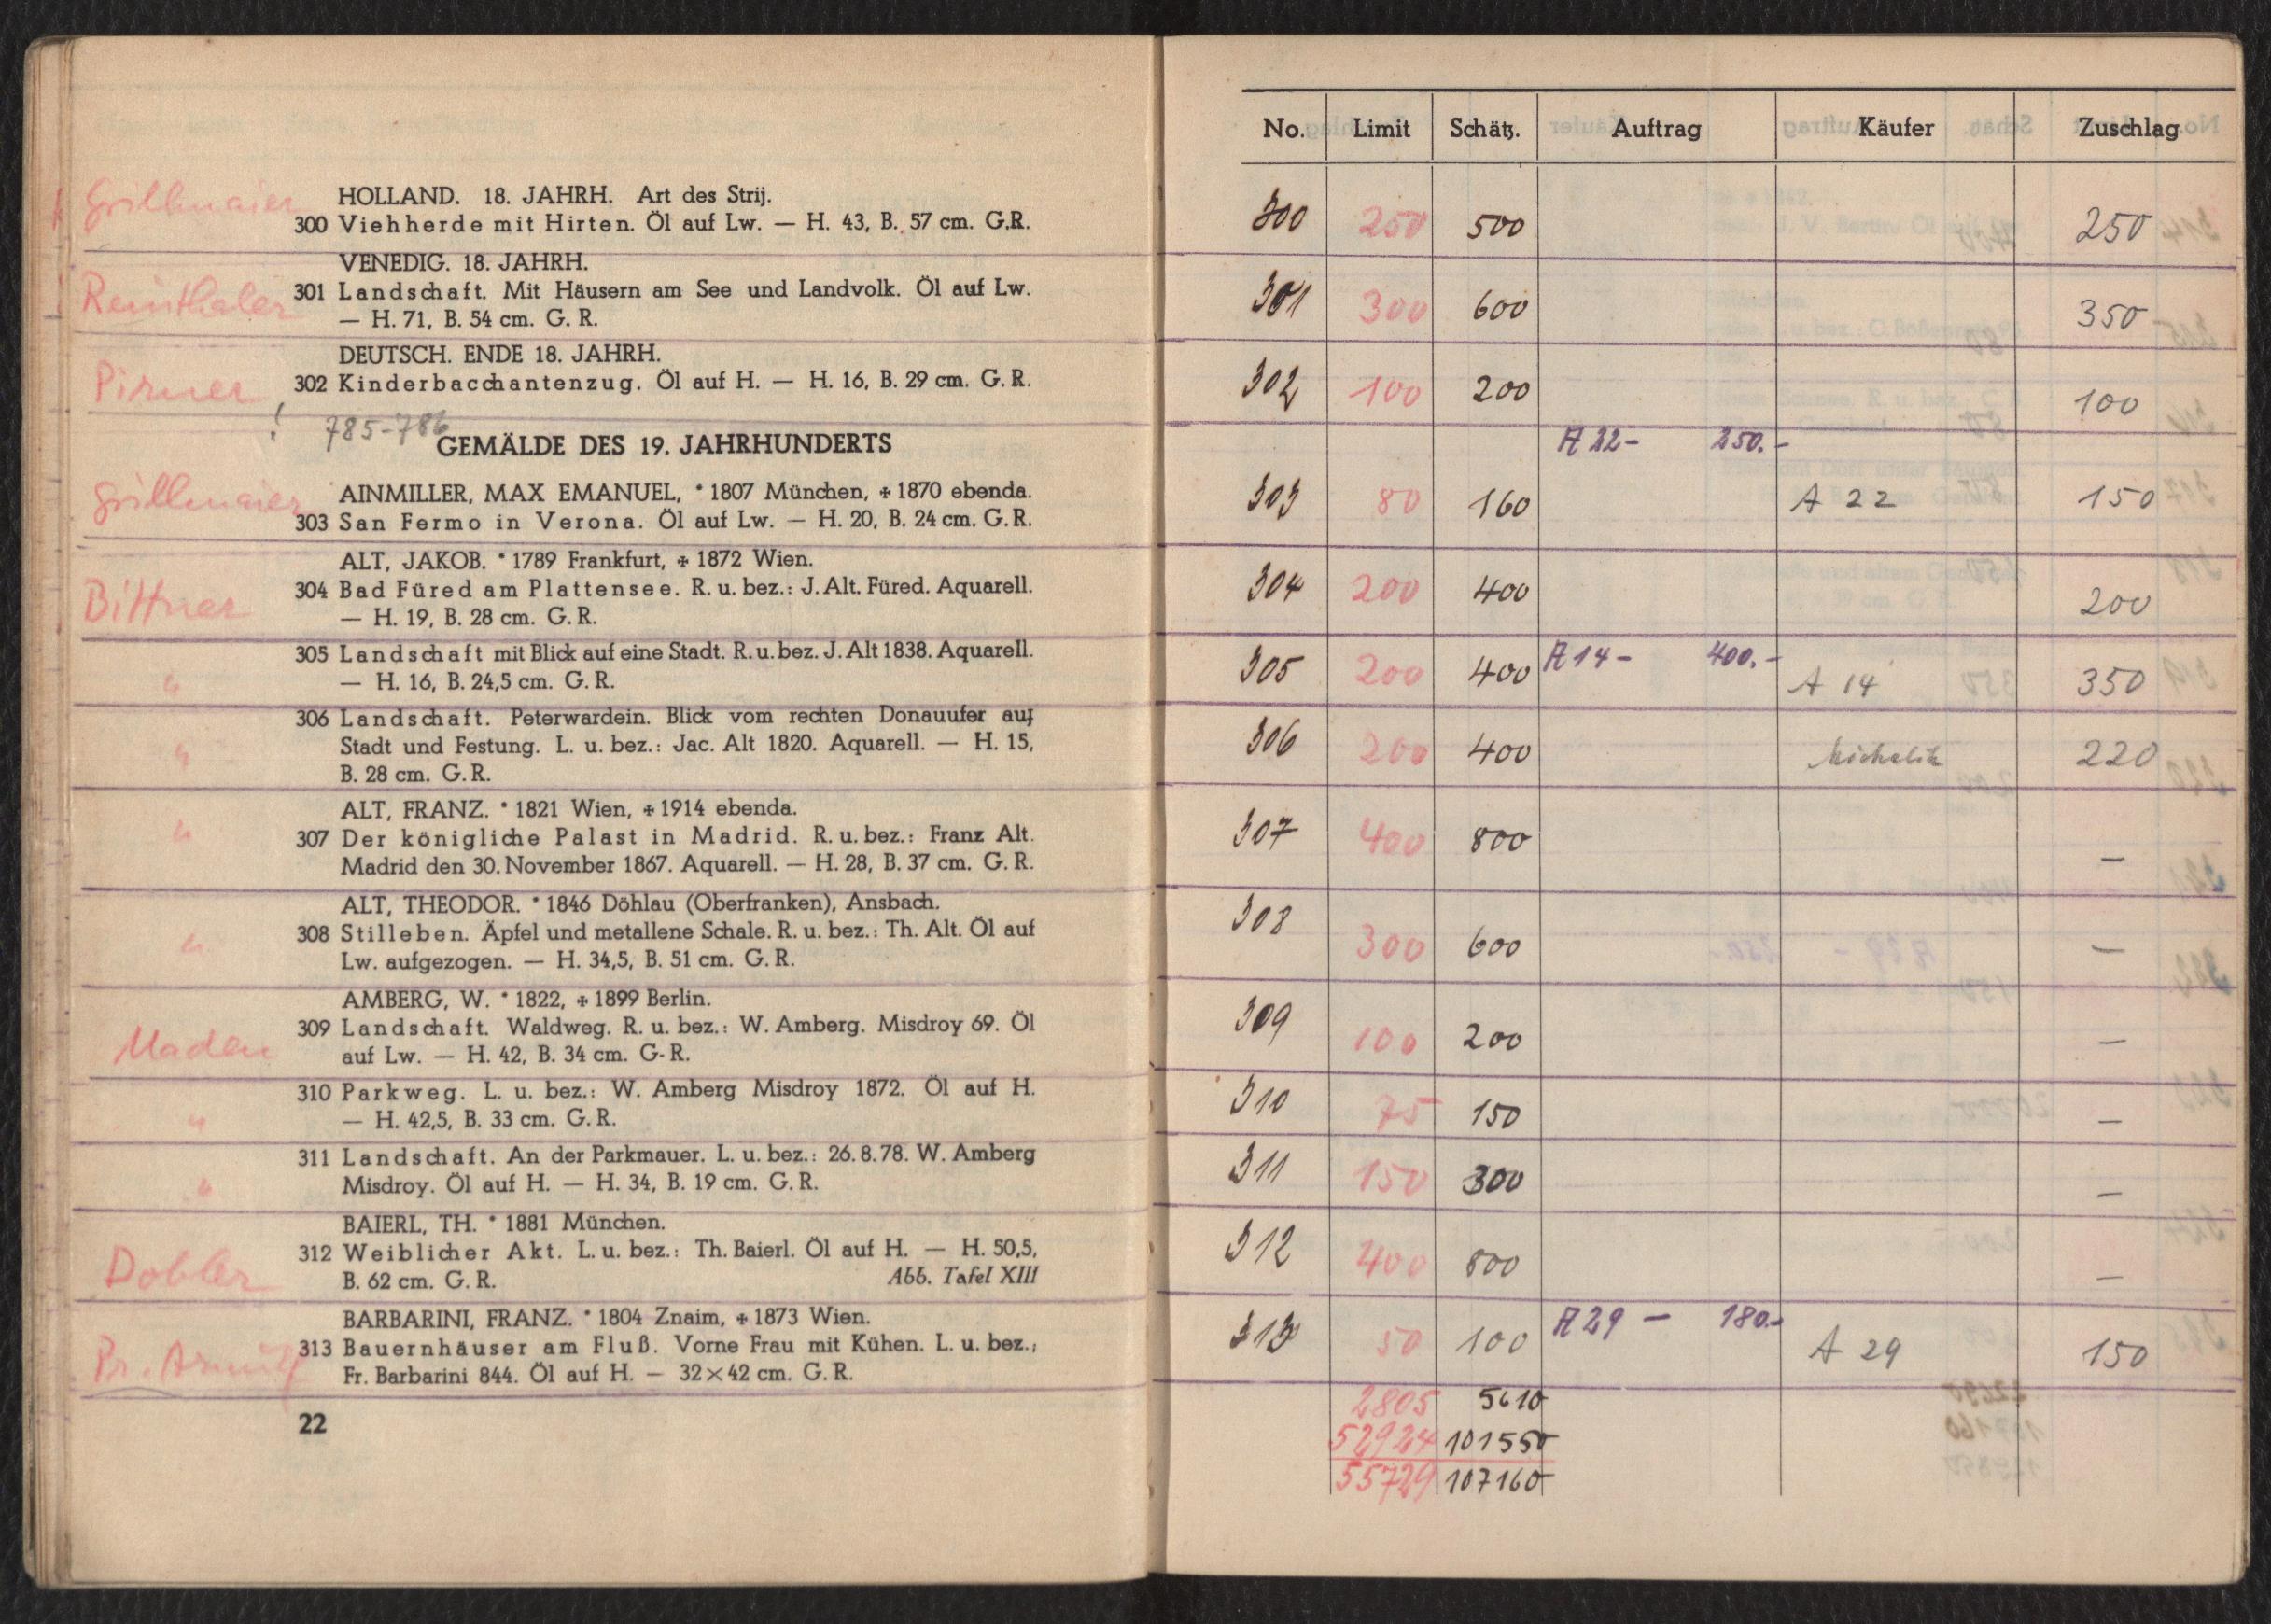 Grillmaier
HOLLAND. 18. JAHRH. Art des Strij.
300 Viehherde mit Hirten. Öl auf Lw. — H. 43, B. 57 cm. G.R.
VENEDIG. 18. JAHRH.
Reinthaler
301 Landschaft. Mit Häusern am See und Landvolk. Öl auf Lw.
— H. 71, B. 54 cm. G. R.
DEUTSCH. ENDE 18. JAHRH.
Pirner
302 Kinderbacchantenzug. Öl auf H. — H. 16, B. 29 cm. G. R.
! 785-786
GEMÄLDE DES 19. JAHRHUNDERTS
Grillmaier
AINMILLER, MAX EMANUEL, * 1807 München, ✢ 1870 ebenda.
303 San Fermo in Verona. Öl auf Lw. — H. 20, B. 24 cm. G. R.
ALT, JAKOB. * 1789 Frankfurt, ✢ 1872 Wien.
Bittner
304 Bad Füred am Plattensee. R. u. bez.: J. Alt. Füred. Aquarell.
— H. 19, B. 28 cm. G. R.
305 Landschaft mit Blick auf eine Stadt. R. u. bez. J. Alt 1838. Aquarell.
" — H. 16, B. 24,5 cm. G. R.
306 Landschaft. Peterwardein. Blick vom rechten Donauufer auf
" Stadt und Festung. L. u. bez.: Jac. Alt 1820. Aquarell. — H. 15,
B. 28 cm. G. R.
ALT, FRANZ. * 1821 Wien, ✢ 1914 ebenda.
" 307 Der königliche Palast in Madrid. R. u. bez.: Franz Alt.
Madrid den 30. November 1867. Aquarell. — H. 28, B. 37 cm. G. R.
ALT, THEODOR. * 1846 Döhlau (Oberfranken), Ansbach.
" 308 Stilleben. Äpfel und metallene Schale. R. u. bez.: Th. Alt. Öl auf
Lw. aufgezogen. — H. 34,5, B. 51 cm. G. R.
AMBERG, W. * 1822, ✢ 1899 Berlin.
Maden
309 Landschaft. Waldweg. R. u. bez.: W. Amberg. Misdroy 69. Öl
auf Lw. — H. 42, B. 34 cm. G-R.
310 Parkweg. L. u. bez.: W. Amberg Misdroy 1872. Öl auf H.
" — H. 42,5, B. 33 cm. G. R.
311 Landschaft. An der Parkmauer. L. u. bez.: 26. 8. 78. W. Amberg
" Misdroy. Öl auf H. — H. 34, B. 19 cm. G. R.
BAIERL, TH. * 1881 München.
Dobler
312 Weiblicher Akt. L. u. bez.: Th. Baierl. Öl auf H. — H. 50,5,
B. 62 cm. G. R. Abb. Tafel XIII
BARBARINI, FRANZ. * 1804 Znaim, ✢ 1873 Wien.
Pr. Arnulf
313 Bauernhäuser am Fluß. Vorne Frau mit Kühen. L. u. bez.;
Fr. Barbarini 844. Öl auf H. — 32 × 42 cm. G. R.
22
No. Limit Schätz. Auftrag Käufer Zuschlag
300 250 500 250
301 300 600 350
302 100 200 100
A 22 - 250.-
303 80 160 A 22 150
304 200 400 200
305 200 400 A 14 - 400.- A 14 350
306 200 400 Michelik 220
307 400 800 —
308 300 600 —
309 100 200 —
310 75 150 —
311 150 300 —
312 400 800 —
313 50 100 A 29 - 180.- A 29 150
2805 5610
52924 101550
55729 107160